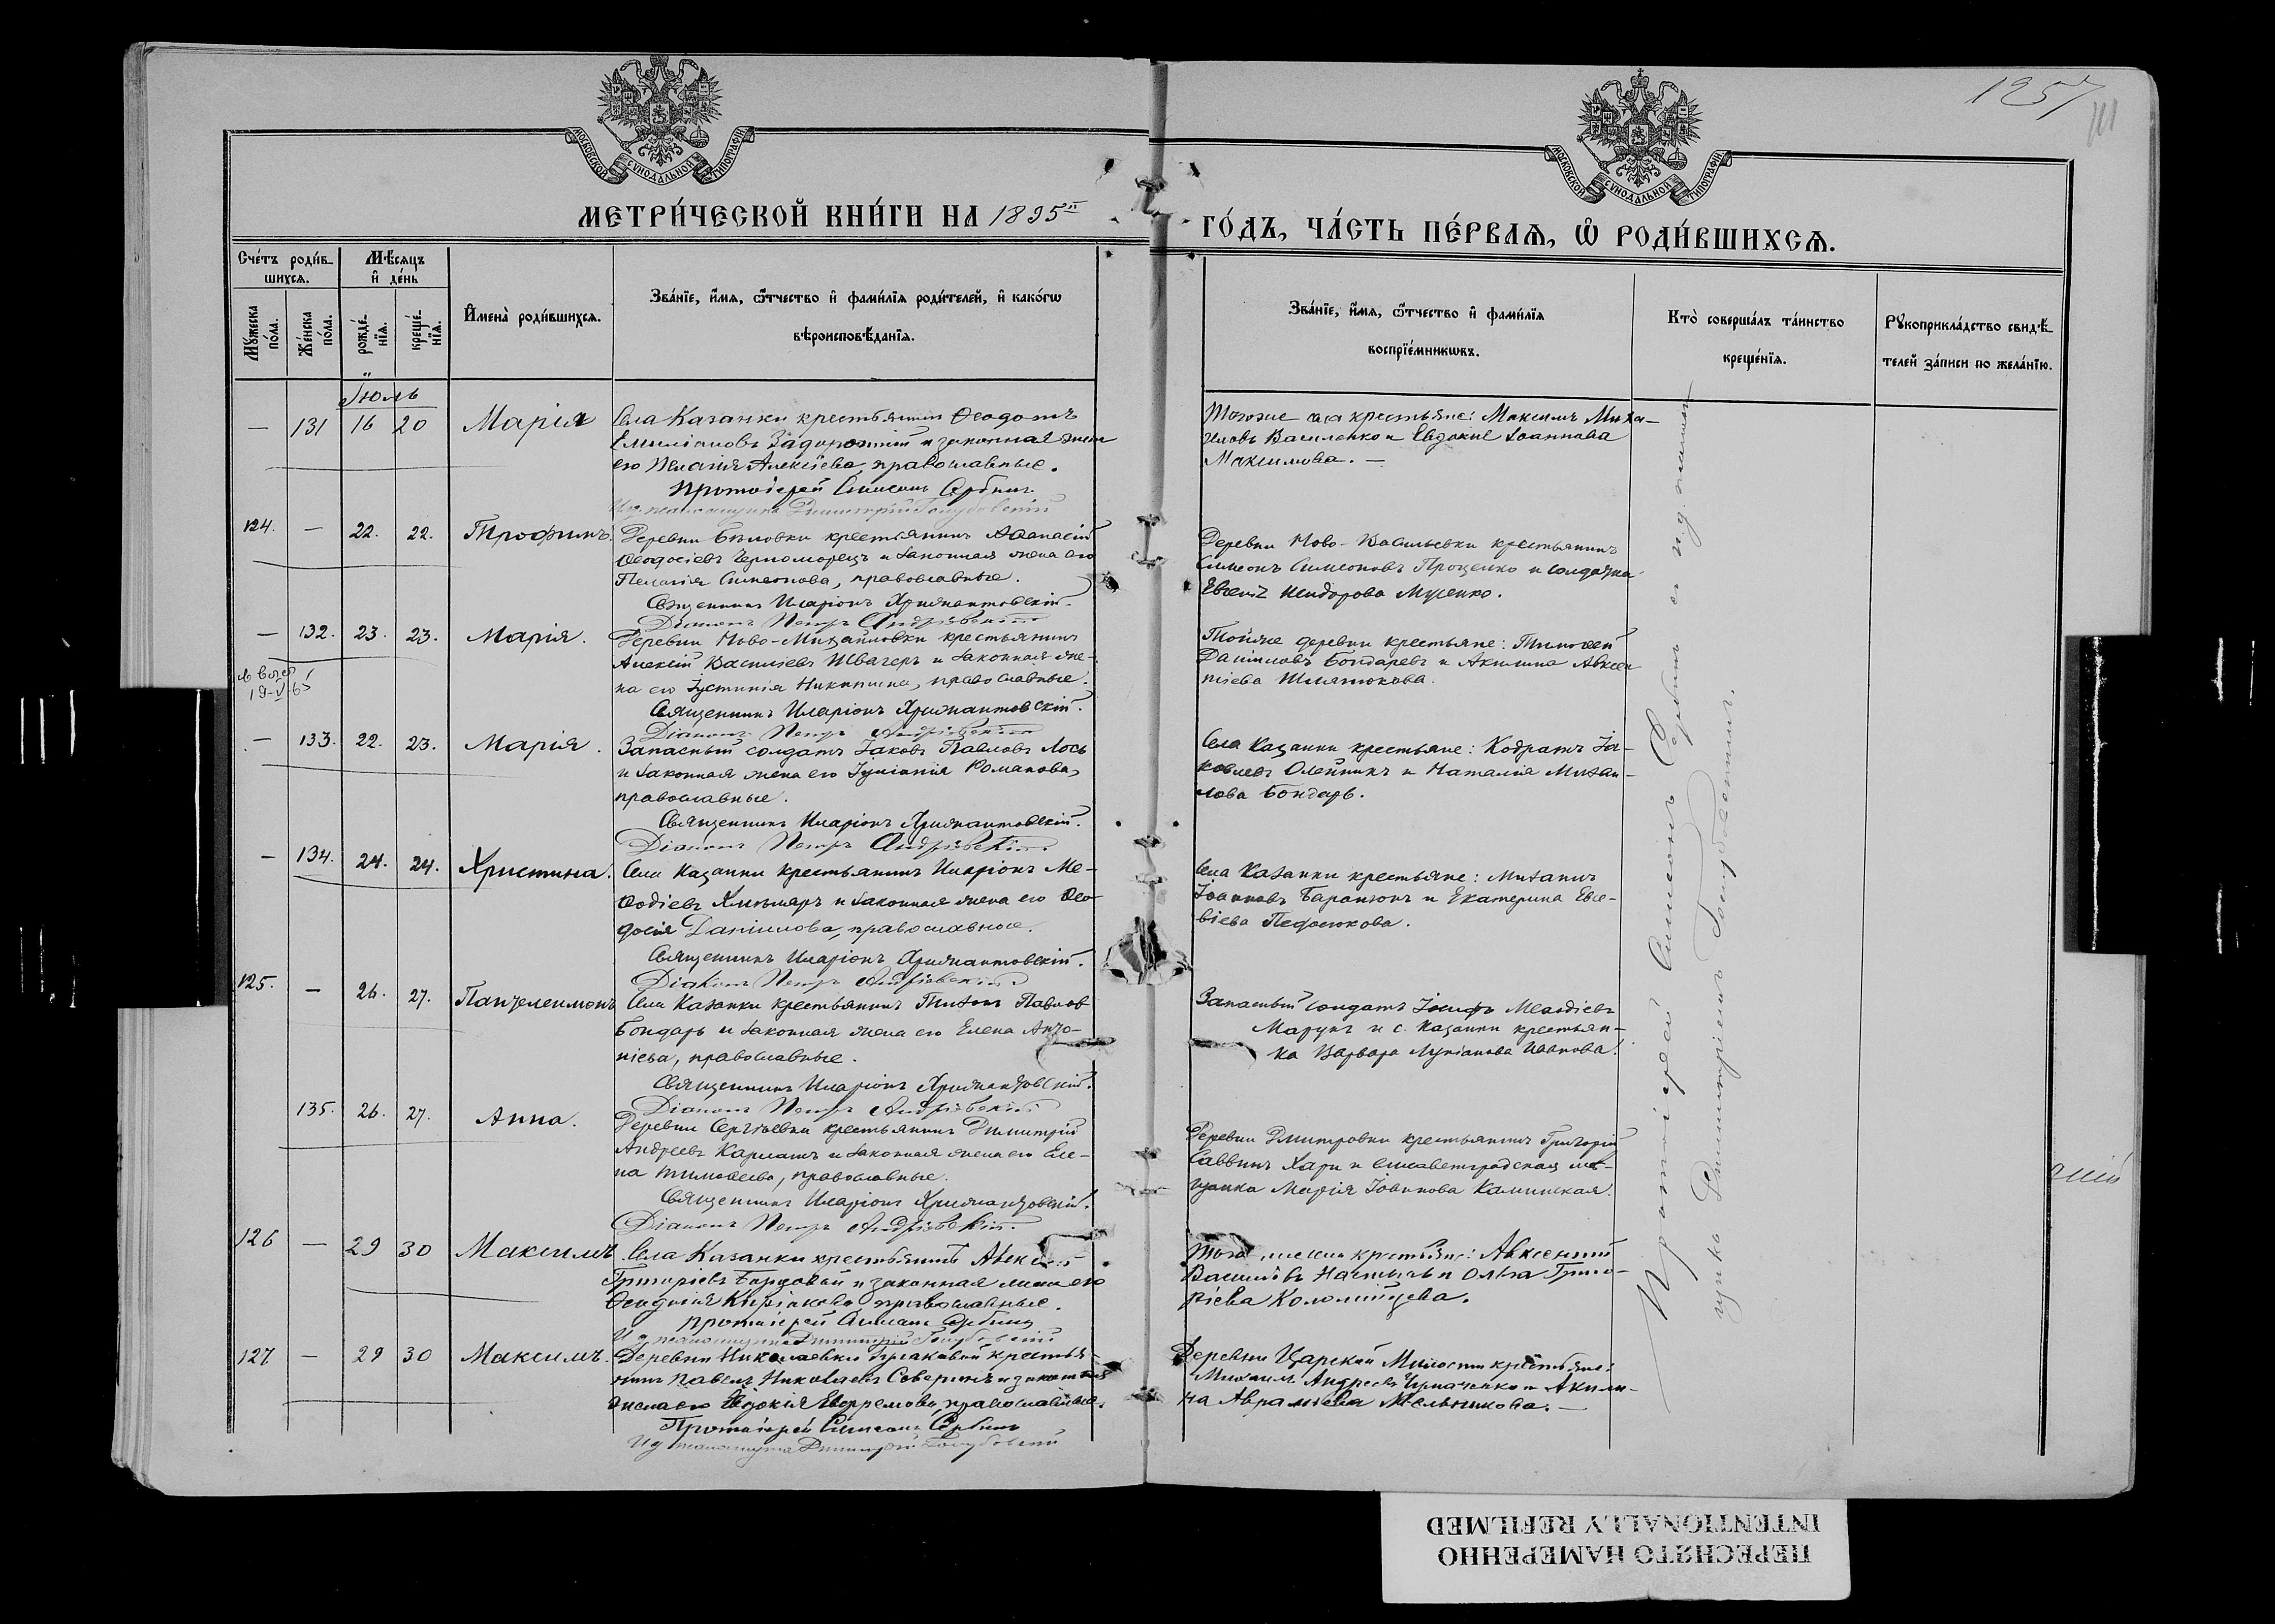 1257
111
МОСКОВСКОЙ СѴНОДАЛЬНОЙ ТИПОГРАФІИ
МОСКОВСКОЙ СѴНОДАЛЬНОЙ ТИПОГРАФІИ
МЕТРИ́ЧЕСКОЙ КНИ́ГИ НА 1895й
ГО́ДЪ, ЧА́СТЬ ПЕ́РВАѦ, Ѡ РОДИ́ВШИХСѦ.
Сче́тъ роди́в-
шихсѧ.
Мѣ́сѧцъ
и҆ де́нь
Мꙋ́жеска по́ла.
Же́нска по́ла.
рожде́-нїѧ.
креще́-нїѧ.
И҆мена̀ роди́вшихсѧ.
Зва́нїе, и҆́мѧ, ѻ҆́тчество и҆ фами́лїѧ роди́телей, и҆ како́гѡ
вѣроисповѣ́данїѧ.
Зва́нїе, и҆́мѧ, ѻ҆́тчество и҆ фами́лїѧ
воспрїе́мникѡвъ.
Кто̀ соверша́лъ та́инство
креще́нїѧ.
Рꙋкоприкла́дство свидѣ́-
телей за́писи по жела́нїю.
Іюль
— 131 16 20 Марія
Села Казанки крестьянинъ Ѳеодотъ
Емиліановъ Задорожній и законная жена
его Пелагія Алексіева, православные.
Протоіерей Симеонъ Сербинъ
И д псаломщика Димитрій Голубовскій
Тогоже села крестьяне: Максимъ Миха-
иловъ Василенко и Евдокія Іоаннова
Максимова. —
124. — 22. 22. Трофимъ.
Деревни Бѣловки крестьянинъ Аѳанасій
Ѳеодосіевъ Черноморецъ и законная жена его
Пелагія Симеонова, православные.
Священникъ Иларіонъ Хрисантовскій.
Діаконъ Петръ Андріевскій
Деревни Ново-Васильевки крестьянинъ
Симеонъ Симеоновъ Проценко и солдатка
Евгенія Исидорова Мусенко.
— 132. 23. 23. Марія.
19-V-65
Деревни Ново-Михайловки крестьянинъ
Алексій Василіевъ Швагеръ и законная же-
на его Іустинія Никитина, православные.
Священникъ Иларіонъ Хрисантовскій.
Діаконъ Петръ Андріевскій
Тойже деревни крестьяне: Тимоѳей
Даніиловъ Бондаревъ и Акилина Авксен-
тіева Шматокова.
— 133. 22. 23. Марія.
Запасный солдатъ Іаковъ Павловъ Лось
и законная жена его Іуліанія Романова,
православные.
Священникъ Иларіонъ Хрисантовскій.
Діаконъ Петръ Андріевскій
Села Казанки крестьяне: Кодратъ Іа-
ковлевъ Олейникъ и Наталія Михаи-
лова Бондарь.
— 134. 24. 24. Христина.
Села Казанки крестьянинъ Иларіонъ Ме-
ѳодіевъ и законная жена его Ѳео-
досія Даніилова, православные.
Священникъ Иларіонъ Хрисантовскій.
Діаконъ Петръ Андріевскій
Села Казанки крестьяне: Михаилъ
Іоанновъ и Екатерина Евсе-
віева Федосюкова.
125. — 26. 27. Пантелеимонъ
Села Казанки крестьянинъ Тихонъ Павлов
Бондарь и законная жена его Елена Анто-
ніева, православные.
Священникъ Иларіонъ Хрисантовскій.
Діаконъ Петръ Андріевскій
Запасный солдатъ Іосифъ Меѳодіевъ
Марунъ и с. Казанки крестьян-
ка Варвара Лукіанова Иванова.
135. 26. 27. Анна.
Деревни Сергіевки крестьянинъ Димитрій
Андреевъ и законная жена его Еле-
на Тимоѳеева, православные.
Священникъ Иларіонъ Хрисантовскій.
Діаконъ Петръ Андріевскій
Деревни Дмитровки крестьянинъ Григорій
Саввинъ Хари и елисаветградская мѣ-
щанка Марія Іоаннова Каминская.
126 — 29 30 Максимъ
Села Казанки крестьянинъ Алексій
Григоріевъ Бардовой и законная жена его
Ѳеодосія Киріакова православные.
Протоіерей Симеонъ Сербинъ
И д псаломщика Димитрій Голубовскій
Того же села крестьяне: Авксентій
Василіевъ и Ольга Григо-
ріева Коломійцева.
127 — 29 30 Максимъ.
Деревни Николаевки крестья-
нинъ Павелъ Николаевъ Северинъ и законная
жена его Евдокія Ефремова, православные.
Протоіерей Симеонъ Сербинъ
И д псаломщика Димитрій Голубовскій
Деревни Царской Милости крестьяне:
Михаилъ Андреевъ и Акили-
на Авраміева Мельникова. —
Протоіерей Симеонъ Сербинъ съ и.д. псалом-
щика Димитріемъ Голубовскимъ.
ПЕРЕСНЯТО НАМЕРЕННО
INTENTIONALLY REFILMED